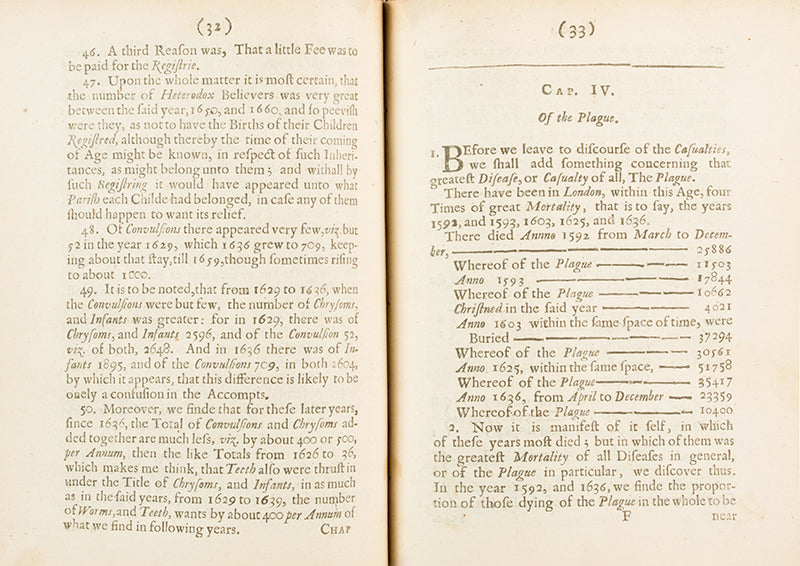 (32)
46. A third Reaſon was, That a little Fee was to
be paid for the Regiſtrie.
47. Upon the whole matter it is moſt certain, that
the number of Heterodox Believers was very great
between the ſaid year, 1650, and 1660, and ſo peeviſh
were they, as not to have the Births of their Children
Regiſtred, although thereby the time of their coming
of Age might be known, in reſpect of ſuch Inheri-
tances, as might belong unto them; and withall by
ſuch Regiſtring it would have appeared unto what
Pariſh each Childe had belonged, in caſe any of them
ſhould happen to want its relief.
48. Of Convulſions there appeared very few, viz. but
52 in the year 1629, which 1636 grew to 709, keep-
ing about that ſtay, till 1659, though ſometimes riſing
to about 1000.
49. It is to be noted, that from 1629 to 1636, when
the Convulſions were but few, the number of Chryſoms,
and Infants was greater: for in 1629, there was of
Chryſoms, and Infants 2596, and of the Convulſion 52,
viz. of both, 2648. And in 1636 there was of In-
fants 1895, and of the Convulſions 709, in both 2604,
by which it appears, that this difference is likely to be
onely a confuſion in the Accompts.
50. Moreover, we finde that for theſe later years,
ſince 1636, the Total of Convulſions and Chryſoms ad-
ded together are much leſs, viz. by about 400 or 500,
per Annum, then the like Totals from 1626 to 36,
which makes me think, that Teeth alſo were thruſt in
under the Title of Chryſoms, and Infants, in as much
as in the ſaid years, from 1629 to 1639, the number
of Worms, and Teeth, wants by about 400 per Annum of
what we find in following years.
CHAP
(33)
CAP. IV.
Of the Plague.
1. BEfore we leave to diſcourſe of the Caſualties,
we ſhall add ſomething concerning that
greateſt Diſeaſe, or Caſualty of all, The Plague.
There have been in London, within this Age, four
Times of great Mortality, that is to ſay, the years
1592, and 1593, 1603, 1625, and 1636.
There died Annno 1592 from March to Decem-
ber, 25886
Whereof of the Plague 11503
Anno 1593 17844
Whereof of the Plague 10662
Chriſtned in the ſaid year 4021
Anno 1603 within the ſame ſpace of time, were
Buried 37294
Whereof of the Plague 30561
Anno 1625, within the ſame ſpace, 51758
Whereof of the Plague 35417
Anno 1636, from April to December 23359
Whereof of the Plague 10400
2. Now it is manifeſt of it ſelf, in which
of theſe years moſt died; but in which of them was
the greateſt Mortality of all Diſeaſes in general,
or of the Plague in particular, we diſcover thus.
In the year 1592, and 1636, we finde the propor-
tion of thoſe dying of the Plague in the whole to be
F near